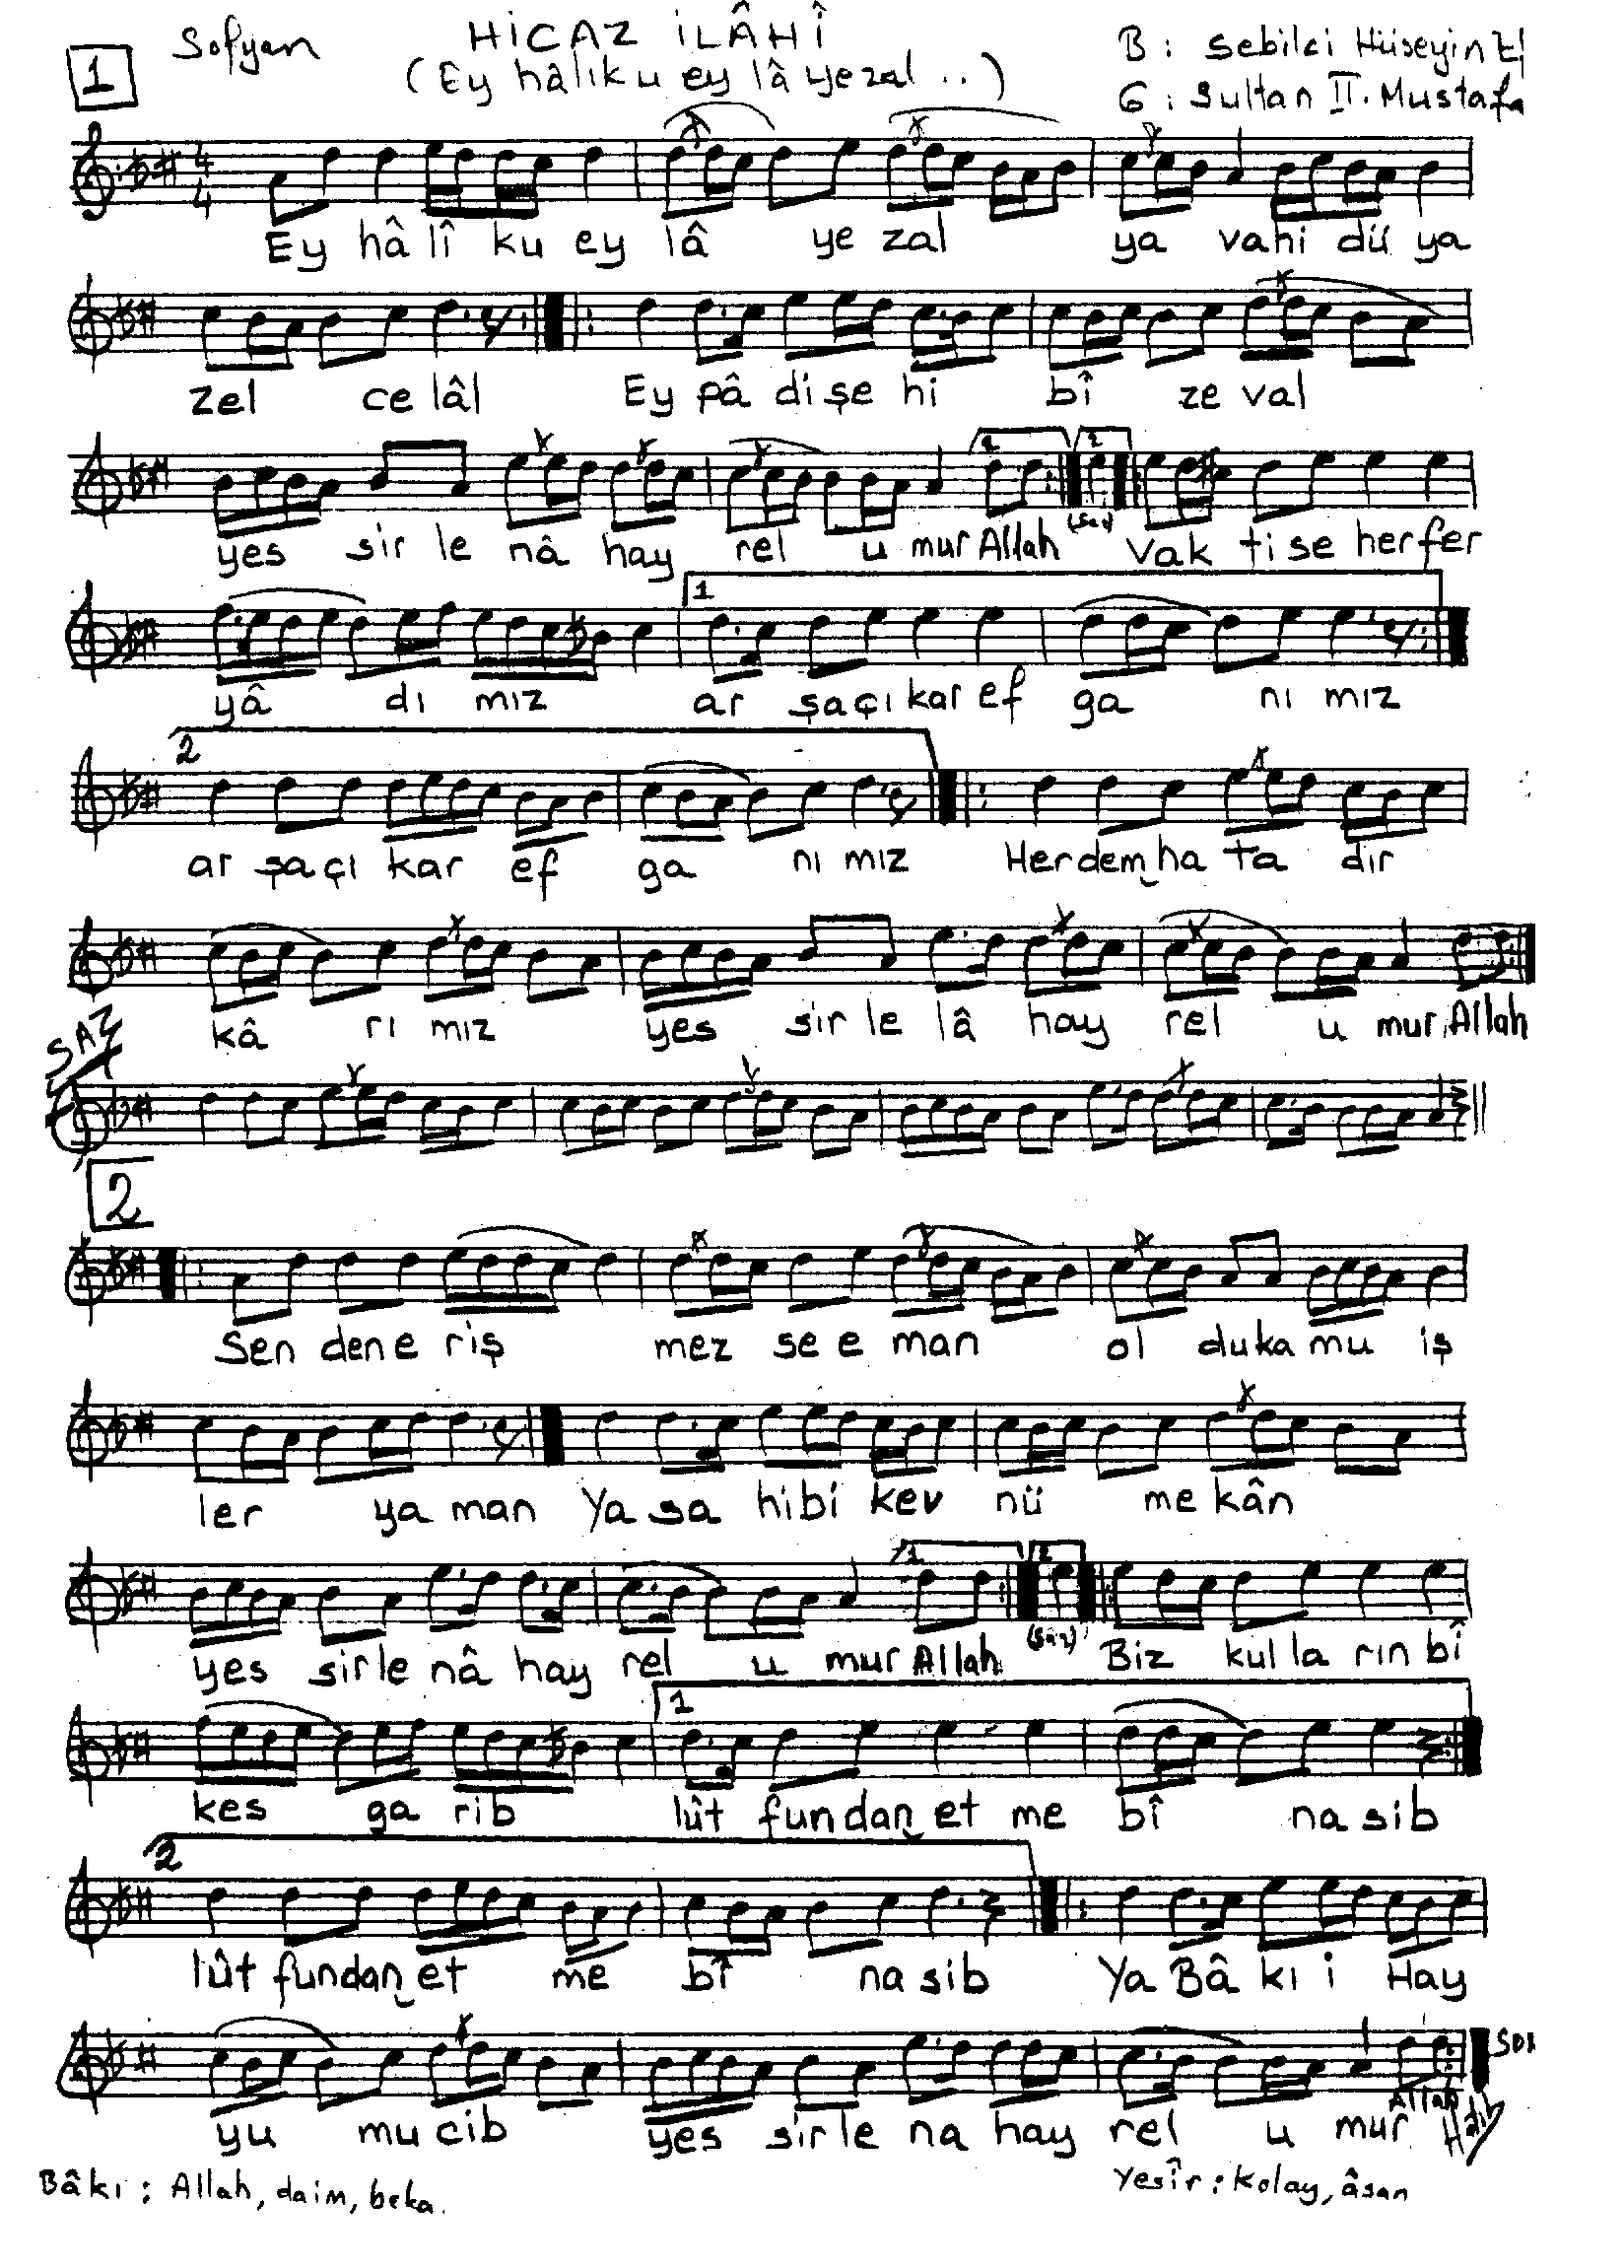 1
Sofyan
HİCAZ İLÂHÎ
(Ey hâlıku ey lâ yezal ..)
B : Sebilci Hüseyin Ef
G : Sultan II. Mustafa
4
4
Ey hâ lî ku ey lâ ye zal ya vahi dü ya
zel ce lâl Ey pâ di şe hi bî ze val
1 2
yes sir le nâ hay rel u mur Allah (saz) vak ti se her fer
1
yâ dı mız ar şa çı kar ef ga nı mız
2
ar şa çı kar ef ga nı mız Her dem ha ta dır
kâ rı mız yes sir le lâ hay rel u mur Allah
SAZ
2
Sen den e riş mez se e man ol du ka mu iş
ler ya man Ya sa hibi kev nü me kân
1 2
yes sir le nâ hay rel u mur Allah (saz) Biz kul la rın bî
1
kes ga rib lût fun dan et me bî na sib
2
lût fun dan et me bî na sib Ya Bâ kı i Hay
SON
yu mu cib yes sir le na hay rel u mur Allah Hay
Bâkı : Allah, daim, beka.
Yesîr : Kolay, âsan